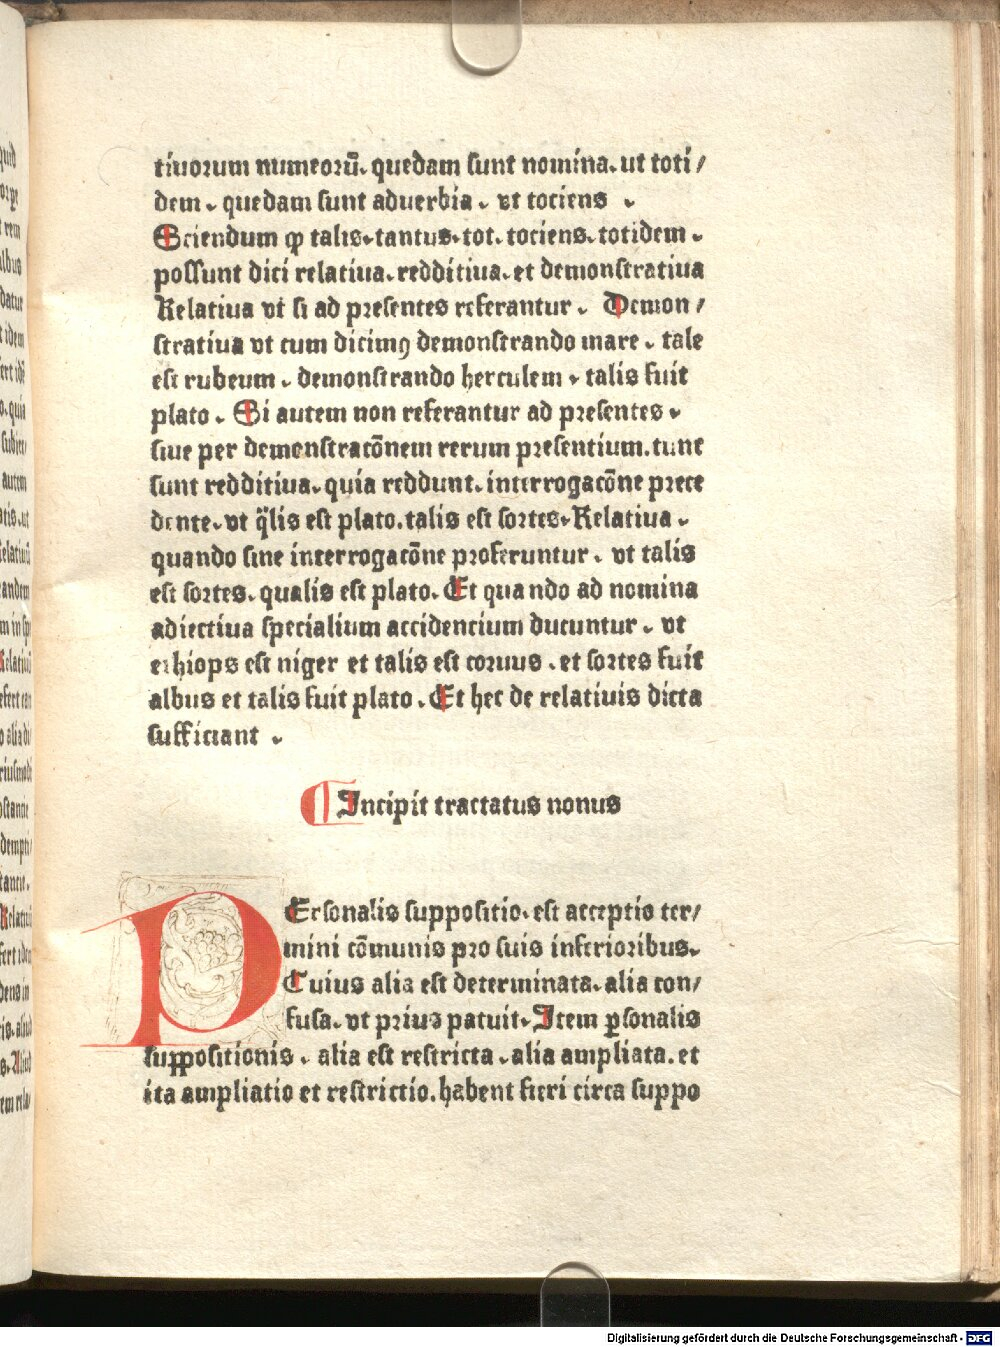 tiuorum numeorū. quedam sunt nomina. ut toti/
dem. quedam sunt aduerbia. vt tociens .
Sciendum ꝙ talis. tantus. tot. tociens. totidem.
possunt dici relatiua. redditiua. et demonstratiua
Relatiua vt si ad presentes referantur. Demon/
stratiua vt cum dicimꝰ demonstrando mare. tale
est rubeum. demonstrando herculem. talis fuit
plato. Si autem non referantur ad presentes.
siue per demonstracōnem rerum presentium. tunc
sunt redditiua. quia reddunt. interrogacōne prece
dente. vt q̈lis est plato. talis est sortes. Relatiua.
quando sine interrogacōne proferuntur. vt talis
est sortes. qualis est plato. Et quando ad nomina
adiectiua specialium accidencium ducuntur. vt
ethiops est niger et talis est coruus. et sortes fuit
albus et talis fuit plato. Et hec de relatiuis dicta
sufficiant .
Incipit tractatus nonus
PErsonalis suppositio. est acceptio ter/
mini cōmunis pro suis inferioribus.
Cuius alia est determinata. alia con/
fusa. vt prius patuit. Item ꝑsonalis
suppositionis. alia est restricta. alia ampliata. et
ita ampliatio et restrictio. habent fieri circa suppo
Digitalisierung gefördert durch die Deutsche Forschungsgemeinschaft - DFG